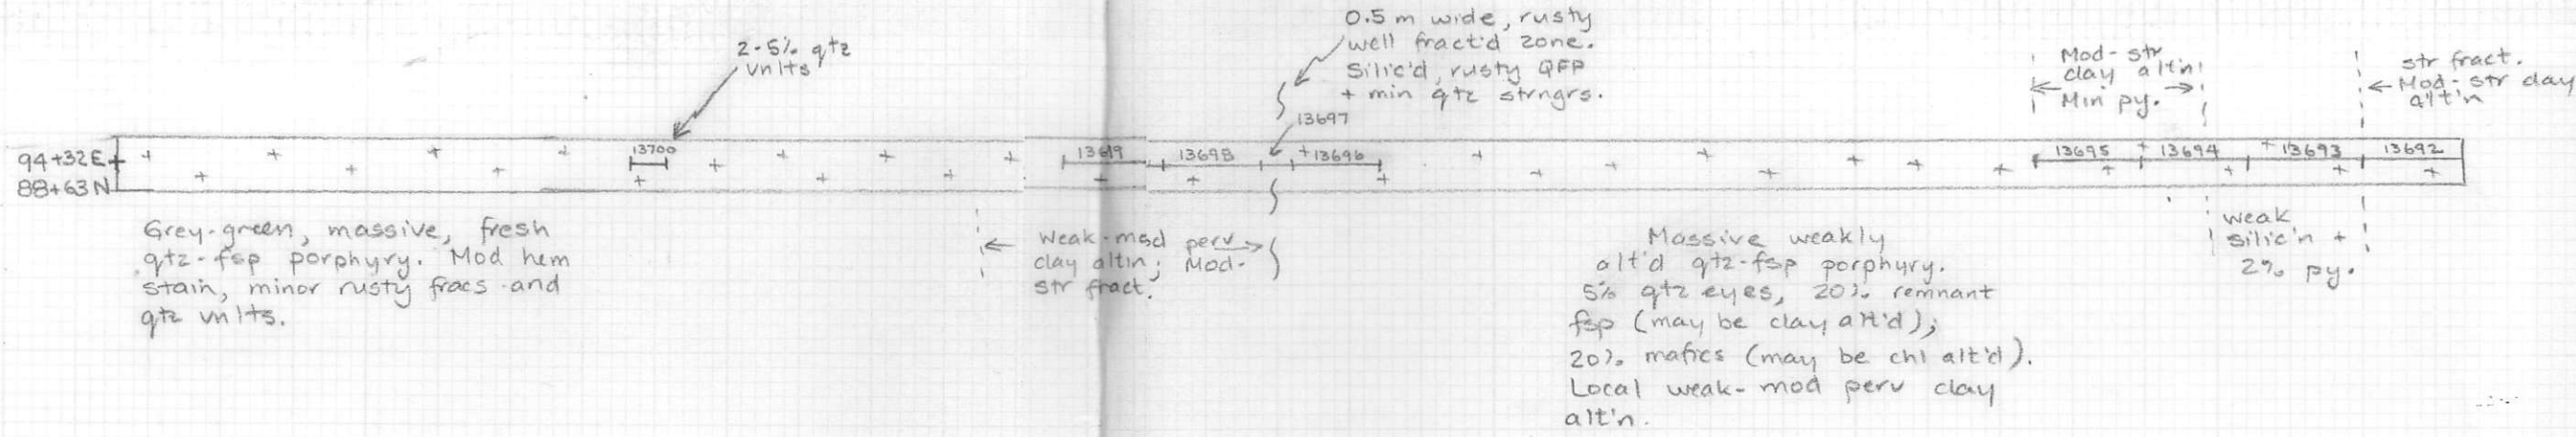 2-5% qtz
vnlts
0.5 m wide, rusty
well fract'd zone.
Silic'd, rusty QFP
+ min qtz strngrs.
13697
Mod-str
clay alt'n
Min py.
str fract.
Mod-str clay
alt'n
94+32E
88+63N
13700
13619
13698
13696
13695
13694
13693
13692
Grey-green, massive, fresh
qtz-fsp porphyry. Mod hem
stain, minor rusty fracs and
qtz vnlts.
Weak-mod perv
clay alt'n; Mod-
str fract.
Massive weakly
alt'd qtz-fsp porphyry.
5% qtz eyes, 20% remnant
fsp (may be clay alt'd);
20% mafics (may be chl alt'd).
Local weak-mod perv clay
alt'n.
weak
silic'n +
2% py.